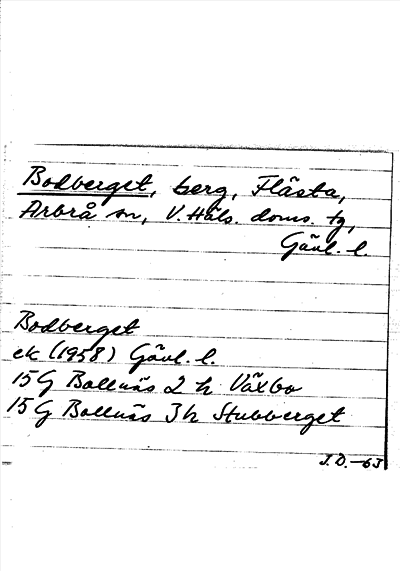 Bodberget, berg, Flästa,
Arbrå sn, V. Häls. doms. tg,
Gävl. l.
Bodberget
ek (1958) Gävl. l.
15 G Bollnäs 2 h Växbo
15 G Bollnäs 3 h Stubberget
J. D. -63